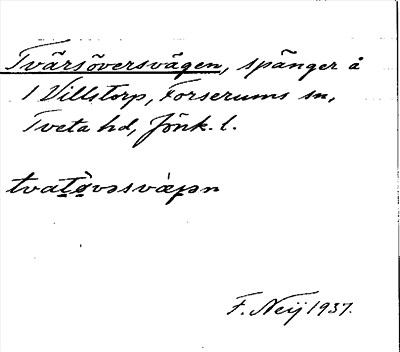 Tvärsöversvägen, spänger å
1 Villstorp, Forserums sn,
Tveta hd, Jönk. l.
F. Neij 1937.